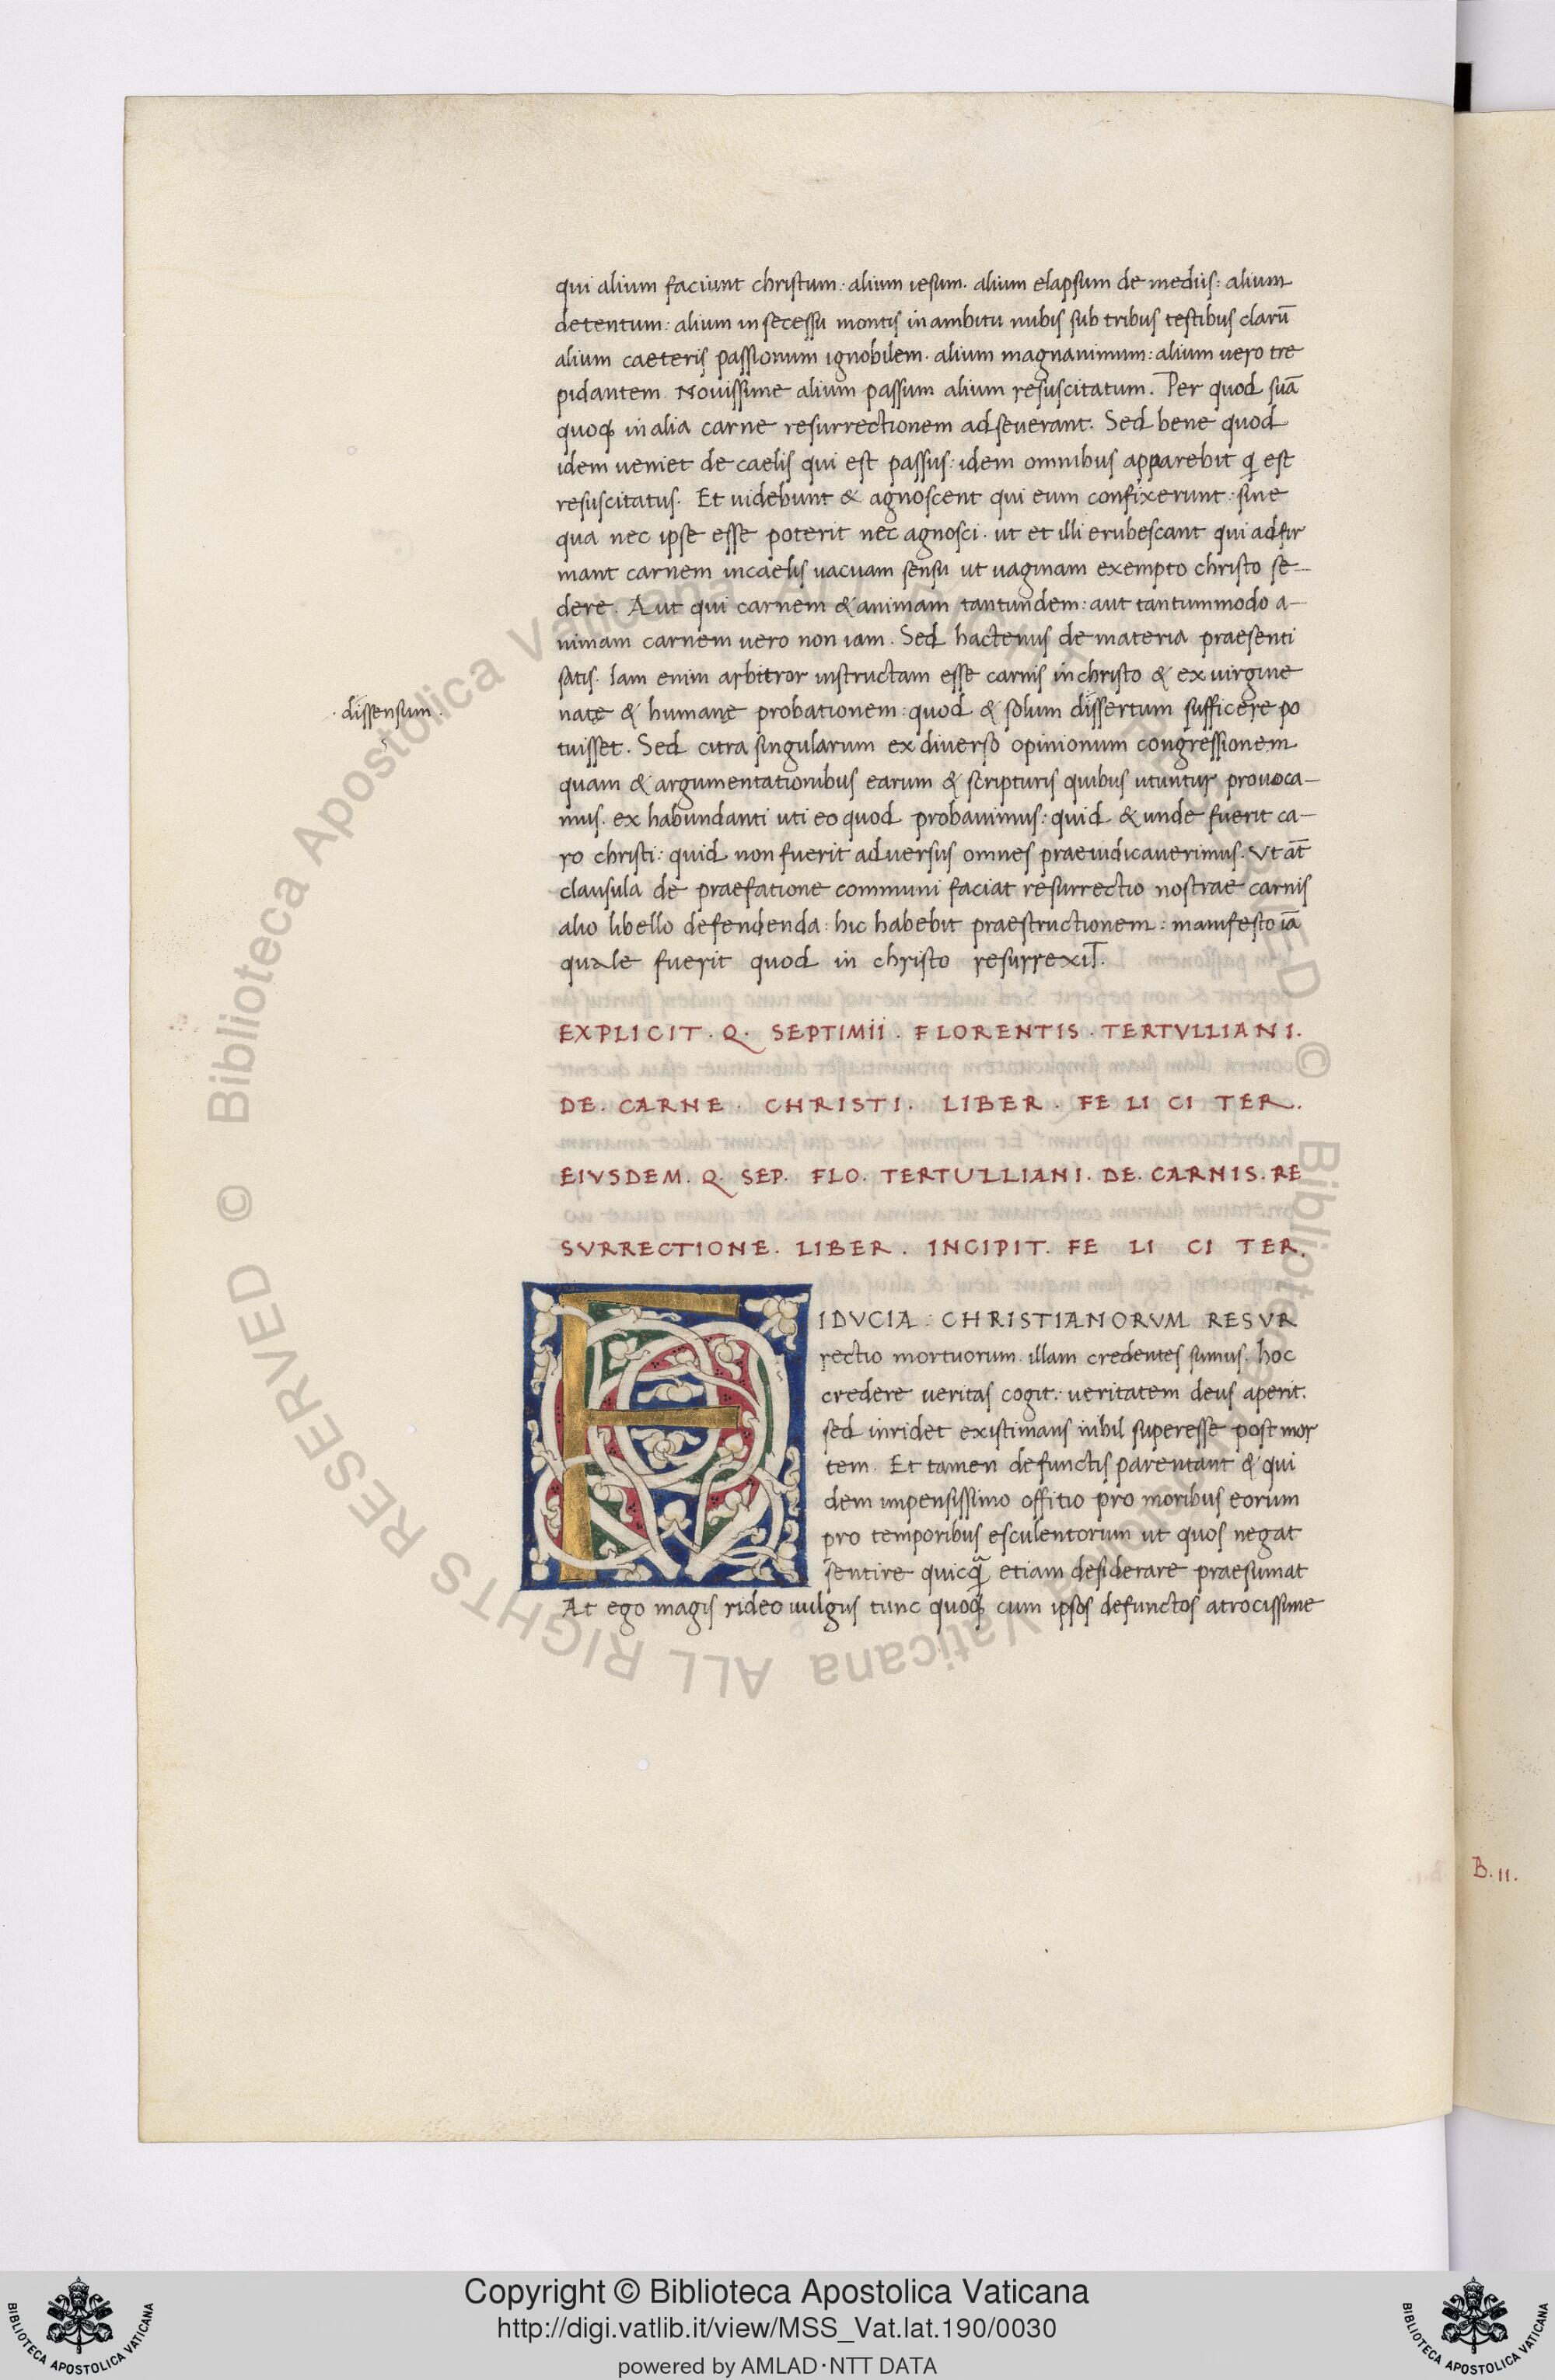 qui alium faciunt christum: alium iesum. alium elapsum de mediis: alium
detentum: alium in secessu montis in ambitu nubis sub tribus testibus clarū
alium caeteris passionum ignobilem. alium magnanimum: alium uero tre
pidantem. Nouissime alium passum alium resuscitatum. Per quod suā
quoqꝫ in alia carne resurrectionem adseuerant. Sed bene quod
idem ueniet de caelis qui est passus: idem omnibus apparebit ꝗ est
resuscitatus. Et uidebunt & agnoscent qui eum confixerunt: sine
qua nec ipse esse poterit nec agnosci. ut et illi erubescant qui adfir
mant carnem in caelis uacuam sensu ut uaginam exempto christo se-
dere. Aut qui carnem & animam tantundem: aut tantummodo a-
nimam carnem uero non iam. Sed hactenus de materia praesenti
satis. Iam enim arbitror instructam esse carnis in christo & ex uirgine
· dissensum ·
natę & humanę probationem: quod & solum dissertum sufficere po
tuisset. Sed citra singularum ex diuerso opinionum congressionem
quam & argumentationibus earum & scripturis quibus utuntur prouoca-
mus. ex habundanti uti eo quod probauimus: quid & unde fuerit ca-
ro christi: quid non fuerit aduersus omnes praeiudicauerimus. Ut āt
clausula de praefatione communi faciat resurrectio nostrae carnis
alio libello defendenda: hic habebit praestructionem: manifesto iā
quale fuerit quod in christo resurrexiT.
EXPLICIT . Q . SEPTIMII . FLORENTIS . TERTVLLIANI.
DE . CARNE . CHRISTI . LIBER . FE LI CI TER.
EIVSDEM . Q . SEP. FLO. TERTULLIANI . DE . CARNIS . RE
SVRRECTIONE . LIBER . INCIPIT. FE LI CI TER.
FIDVCIA : CHRISTIANORVM RESVR
rectio mortuorum. illam credentes sumus. hoc
credere ueritas cogit: ueritatem deus aperit.
sed inridet existimans nihil superesse post mor
tem. Et tamen defunctis parentant & qui
dem impensissimo offitio pro moribus eorum
pro temporibus esculentorum ut quos negat
sentire quicꝗ̄ etiam desiderare praesumat
At ego magis rideo uulgus tunc quoqꝫ cum ipsos defunctos atrocissime
B. II.
© Biblioteca Apostolica Vaticana ALL RIGHTS RESERVED
© Biblioteca Apostolica Vaticana ALL RIGHTS RESERVED
Copyright © Biblioteca Apostolica Vaticana
http://digi.vatlib.it/view/MSS_Vat.lat.190/0030
powered by AMLAD·NTT DATA
BIBLIOTECA APOSTOLICA VATICANA
BIBLIOTECA APOSTOLICA VATICANA